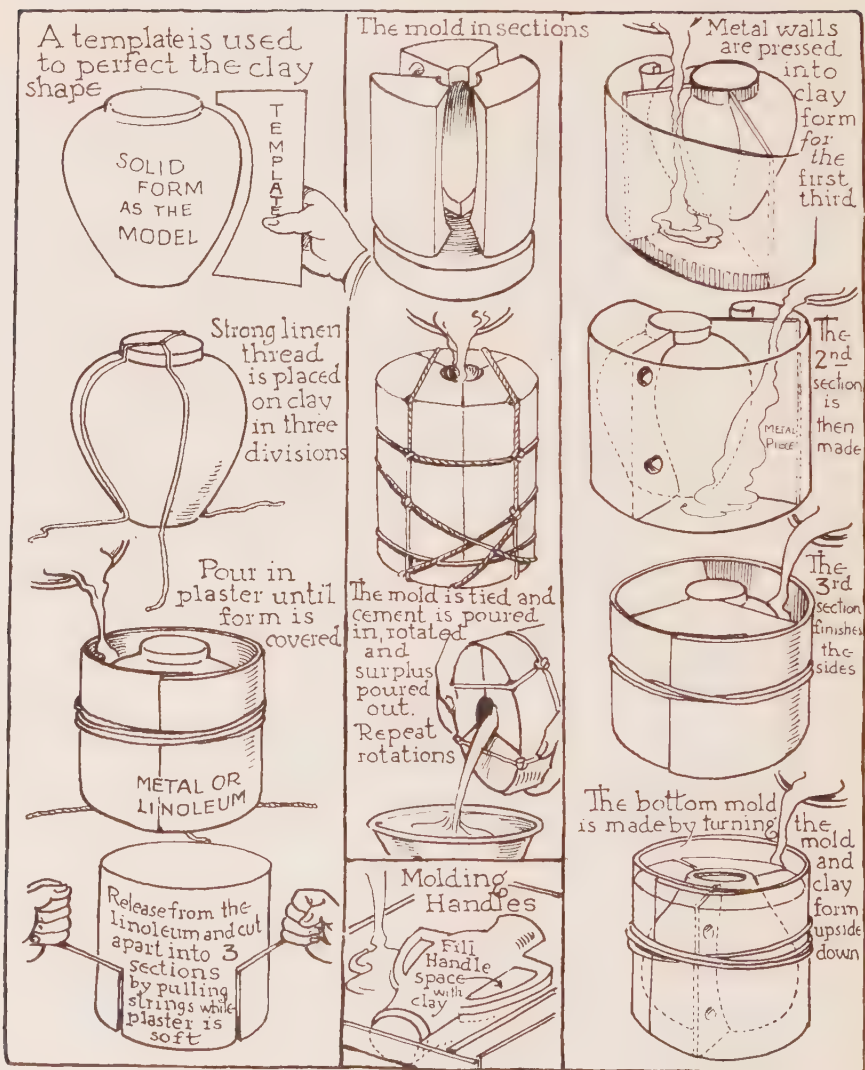 A template is used
to perfect the clay
shape
SOLID
FORM
AS THE
MODEL
TEMPLATE
Strong linen
thread
is placed
on clay
in three
divisions
Pour in
plaster until
form is
covered
METAL OR
LINOLEUM
Release from the
linoleum and cut
apart into 3
sections
by pulling
strings while
plaster is
soft
The mold in sections
The mold is tied and
cement is poured
in, rotated
and
surplus
poured
out.
Repeat
rotations
Molding
Handles
Fill
Handle
space
with
clay
Metal walls
are pressed
into
clay
form
for
the
first
third
The
2nd
section
is
then
made
METAL
PIECE
The
3rd
section
finishes
the
sides
The bottom mold
is made by turning the
mold
and
clay
form
upside
down